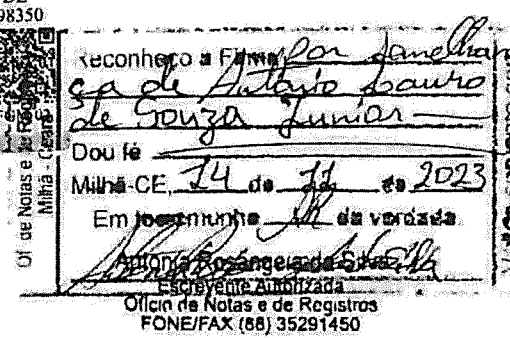 98350
Of. de Notas e de Reg
Milhã - Ceará
Reconheço a Firma por Semelhan
ça de Antonio Lauro
de Souza Junior
Dou fé
Milhã-CE, 14 de 11 de 2023
Em testemunho da verdade
Antonia Rosângela da Silva
Escrevente Autorizada
Oficio de Notas e de Registros
FONE/FAX (88) 35291450